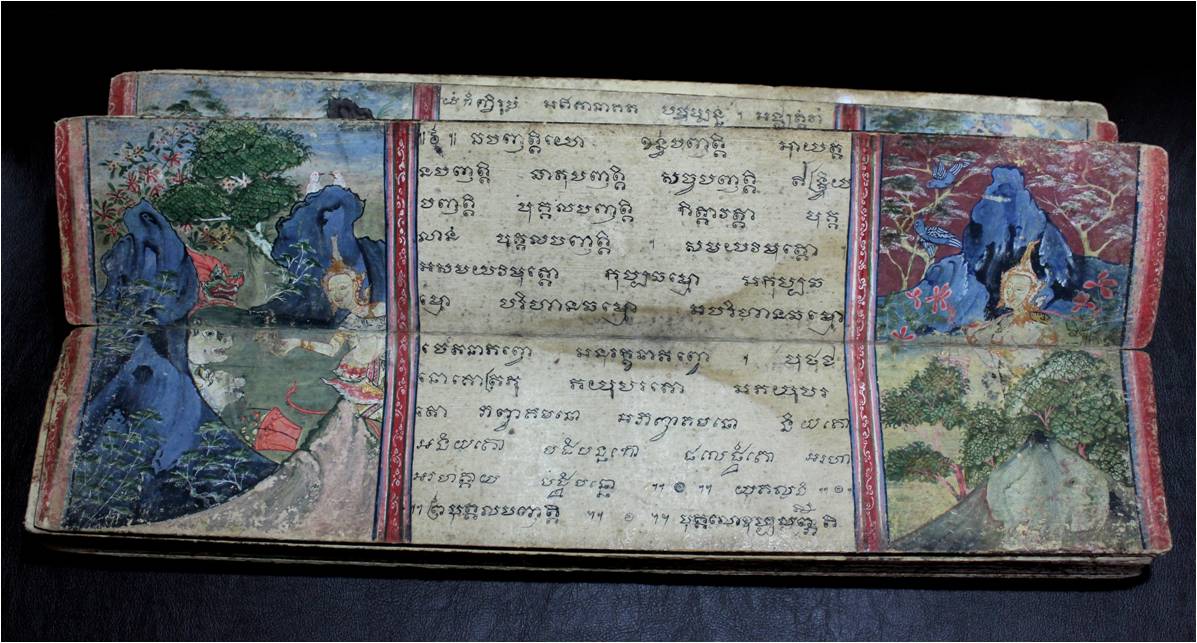 យំកិញ្ចិរូបំ អតីតានាគត បច្ចុប្បន្នំ ។ អជ្ឈត្តំវា
ឆបញ្ញត្តិយោ ខន្ធបញ្ញត្តិ អាយត
នបញ្ញត្តិ ធាតុបញ្ញត្តិ សច្ចបញ្ញត្តិ ឥន្ទ្រិយ
បញ្ញត្តិ បុគ្គលបញ្ញត្តិ កិត្តាវត្តា បុគ្គ
លានំ បុគ្គលបញ្ញត្តិ ។ សមយវិមុត្តោ
អសមយវិមុត្តោ កុប្បធម្មោ អកុប្បធ
ម្មោ បរិហានធម្មោ អបរិហានធម្មោ
ចេតនាភព្វោ អនុរក្ខនាភព្វោ ។ បុថុជ្ជ
នោគោត្រភូ ភយូបរតោ អភយូបរ
តោ ភព្វាគមនោ អភព្វាគមនោ និយតោ
អនិយតោ បដិបន្នកោ ផលេដ្ឋិតោ អរហា
អរហត្តាយ បដិបន្នោ
បុគ្គលបញ្ញត្តិ